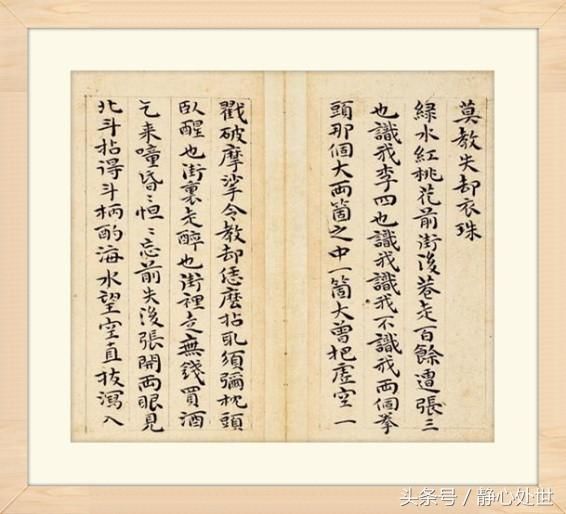 莫教失却衣珠
緑水紅桃花前街後巷走百餘遭張三
也識我李四也識我識我不識我兩個拳
頭那個大兩箇之中一箇大曾把虛空一
戳破摩挲令教却恁麼拈取須彌枕頭
臥醒也街裏走醉也街裡立無錢買酒
乞来噇昏〻怛〻忘前失後張開兩眼見
北斗拈得斗柄酌海水望空直抜瀉入
头条号 / 静心处世